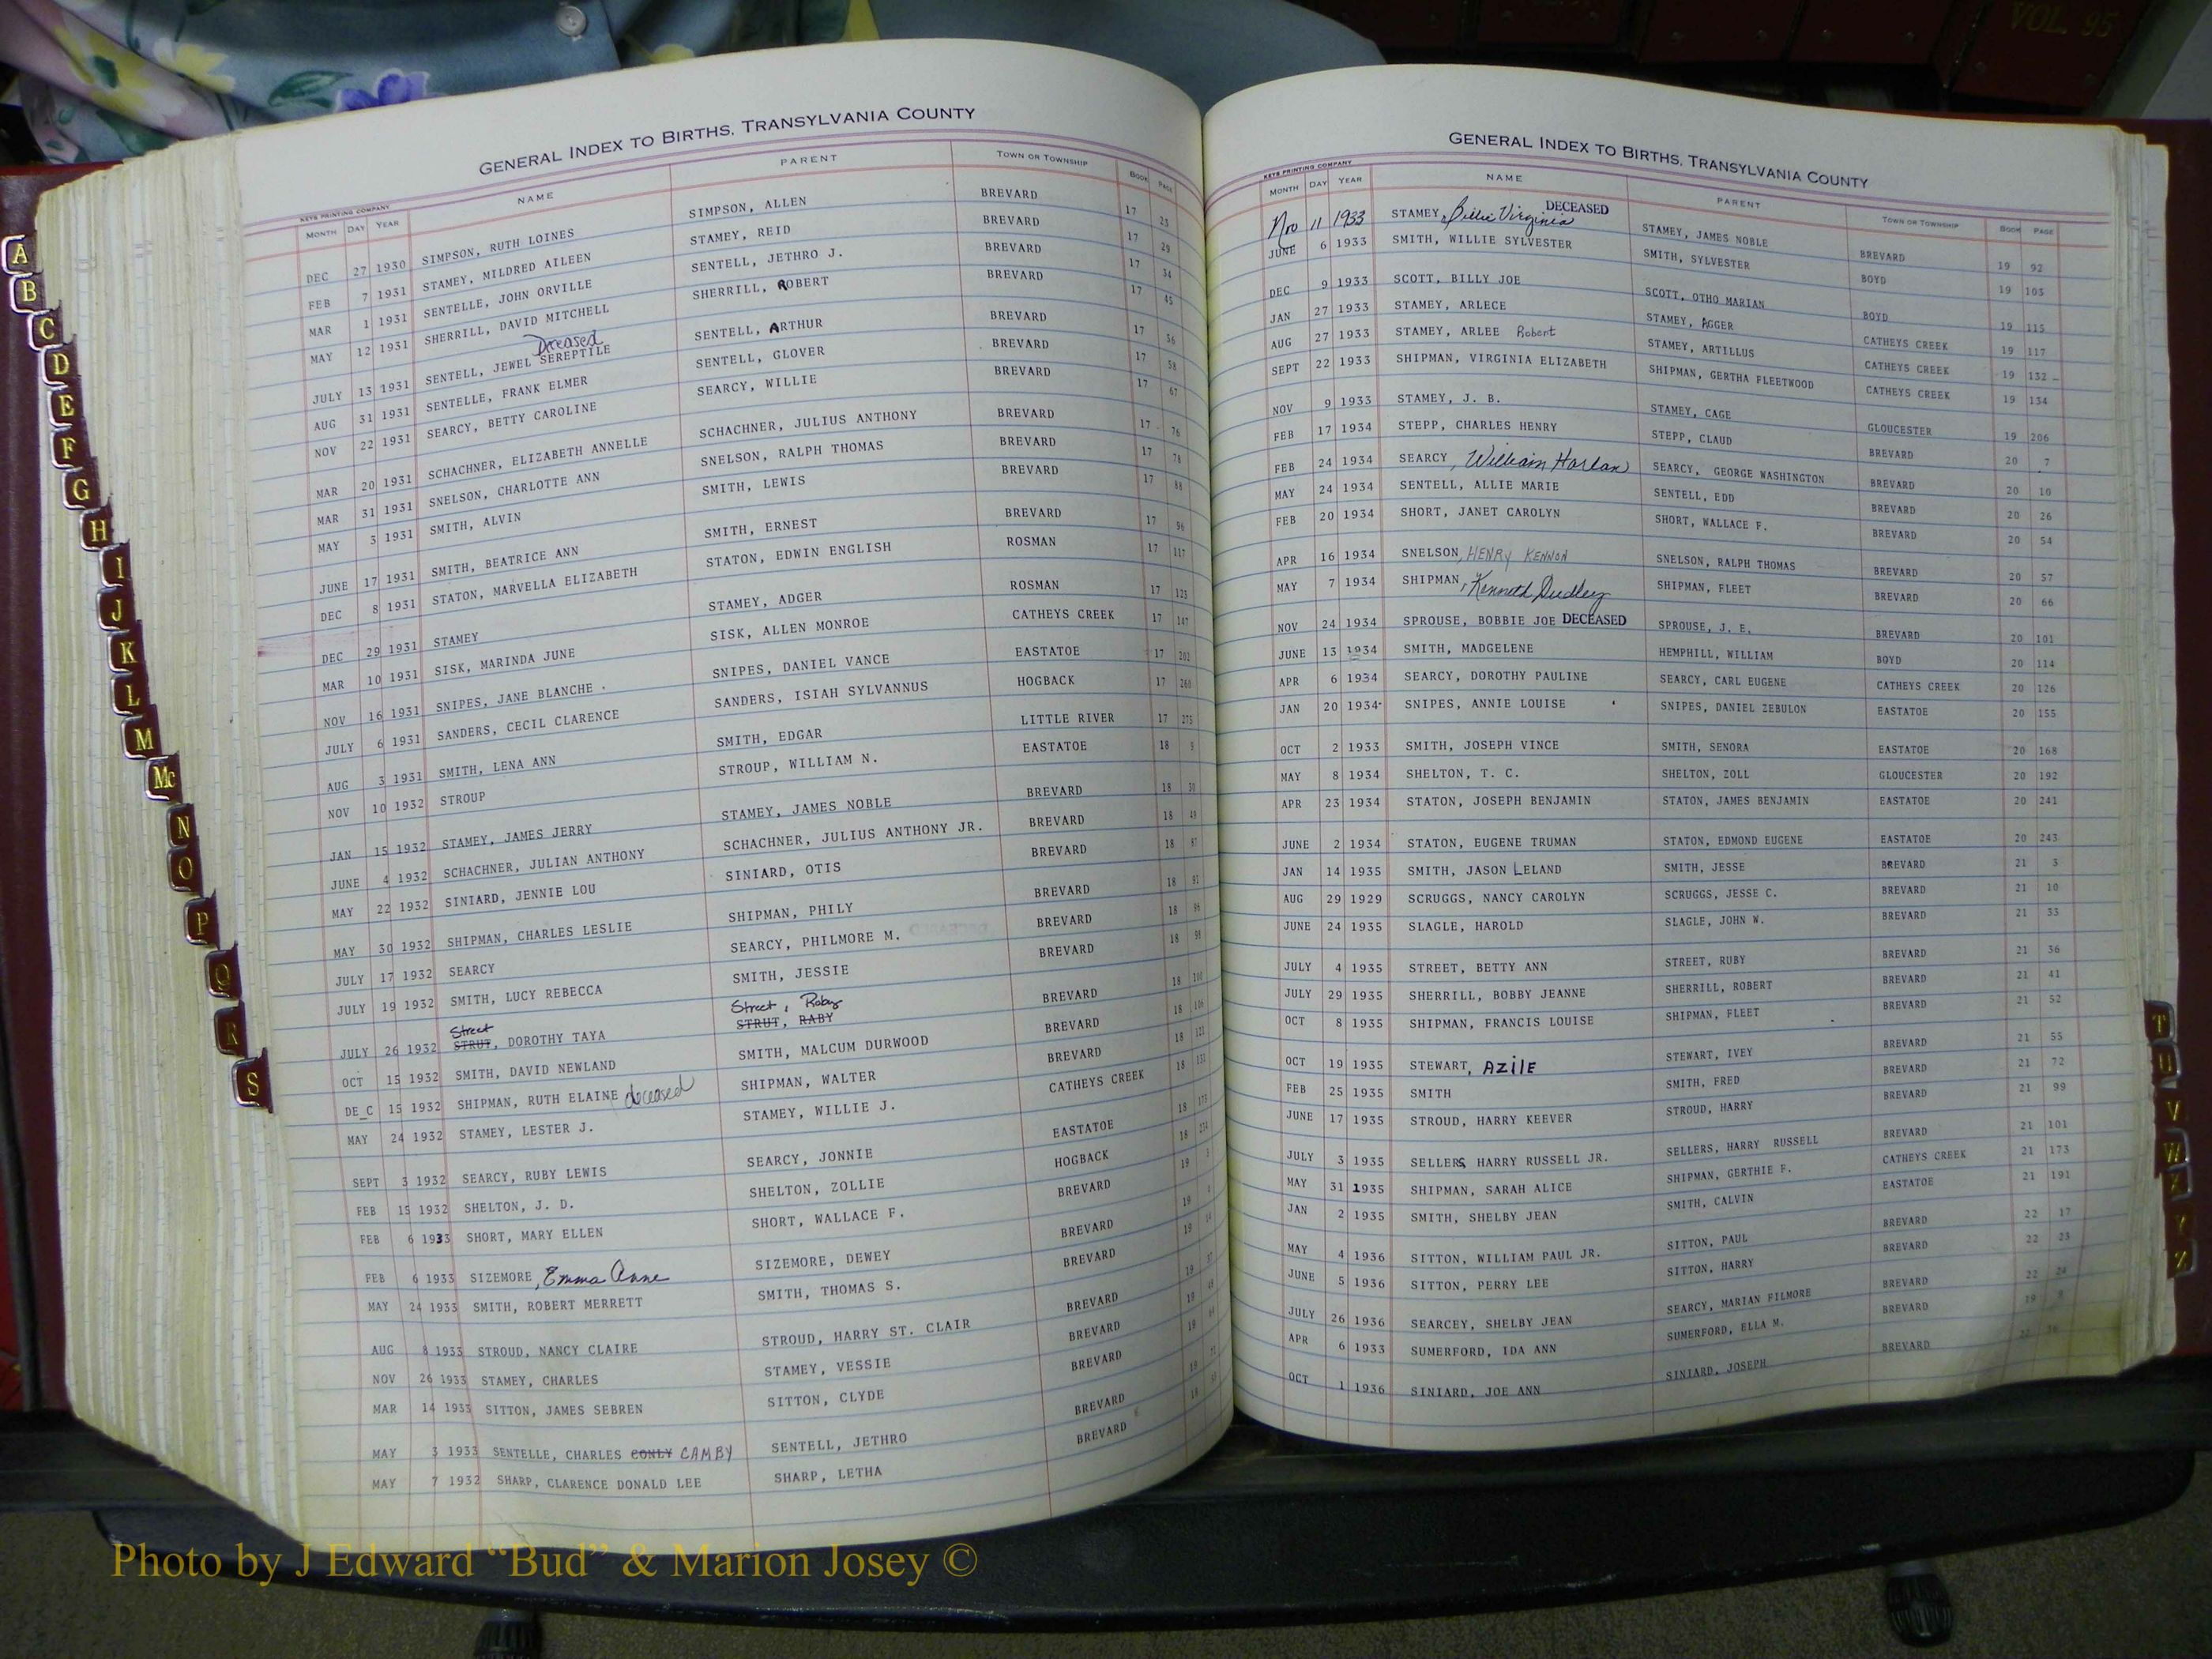 VOL. 95
GENERAL INDEX TO BIRTHS, TRANSYLVANIA COUNTY
KEYS PRINTING COMPANY
MONTH DAY YEAR NAME PARENT TOWN OR TOWNSHIP BOOK PAGE
DEC 27 1930 SIMPSON, RUTH LOINES SIMPSON, ALLEN BREVARD 17 23
FEB 7 1931 STAMEY, MILDRED AILEEN STAMEY, REID BREVARD 17 29
MAR 1 1931 SENTELLE, JOHN ORVILLE SENTELL, JETHRO J. BREVARD 17 34
MAY 12 1931 SHERRILL, DAVID MITCHELL SHERRILL, ROBERT BREVARD 17 45
Deceased
JULY 13 1931 SENTELL, JEWEL SEREPTILE SENTELL, ARTHUR BREVARD 17 56
AUG 31 1931 SENTELLE, FRANK ELMER SENTELL, GLOVER BREVARD 17 58
NOV 22 1931 SEARCY, BETTY CAROLINE SEARCY, WILLIE BREVARD 17 67
MAR 20 1931 SCHACHNER, ELIZABETH ANNELLE SCHACHNER, JULIUS ANTHONY BREVARD 17 76
MAR 31 1931 SNELSON, CHARLOTTE ANN SNELSON, RALPH THOMAS BREVARD 17 78
MAY 3 1931 SMITH, ALVIN SMITH, LEWIS BREVARD 17 88
JUNE 17 1931 SMITH, BEATRICE ANN SMITH, ERNEST BREVARD 17 96
DEC 8 1931 STATON, MARVELLA ELIZABETH STATON, EDWIN ENGLISH ROSMAN 17 117
DEC 29 1931 STAMEY STAMEY, ADGER ROSMAN 17 123
MAR 10 1931 SISK, MARINDA JUNE SISK, ALLEN MONROE CATHEYS CREEK 17 147
NOV 16 1931 SNIPES, JANE BLANCHE SNIPES, DANIEL VANCE EASTATOE 17 202
JULY 6 1931 SANDERS, CECIL CLARENCE SANDERS, ISIAH SYLVANNUS HOGBACK 17 260
AUG 3 1931 SMITH, LENA ANN SMITH, EDGAR LITTLE RIVER 17 275
NOV 10 1932 STROUP STROUP, WILLIAM N. EASTATOE 18
JAN 15 1932 STAMEY, JAMES JERRY STAMEY, JAMES NOBLE BREVARD 18
JUNE 4 1932 SCHACHNER, JULIAN ANTHONY SCHACHNER, JULIUS ANTHONY JR. BREVARD 18 49
MAY 22 1932 SINIARD, JENNIE LOU SINIARD, OTIS BREVARD 18
MAY 30 1932 SHIPMAN, CHARLES LESLIE SHIPMAN, PHILY BREVARD 18 92
JULY 17 1932 SEARCY SEARCY, PHILMORE M. BREVARD 18 96
JULY 19 1932 SMITH, LUCY REBECCA SMITH, JESSIE BREVARD 18 98
Street Street, Roby
JULY 26 1932 STRUT, DOROTHY TAYA STRUT, RABY BREVARD 18 100
OCT 15 1932 SMITH, DAVID NEWLAND SMITH, MALCUM DURWOOD BREVARD 18 106
DE_C 15 1932 SHIPMAN, RUTH ELAINE deceased SHIPMAN, WALTER BREVARD 18 121
MAY 24 1932 STAMEY, LESTER J. STAMEY, WILLIE J. CATHEYS CREEK 18 133
SEPT 3 1932 SEARCY, RUBY LEWIS SEARCY, JONNIE EASTATOE 18 173
FEB 15 1932 SHELTON, J. D. SHELTON, ZOLLIE HOGBACK 18 234
FEB 6 1933 SHORT, MARY ELLEN SHORT, WALLACE F. BREVARD 19 3
FEB 6 1933 SIZEMORE, Emma Anne SIZEMORE, DEWEY BREVARD 19 4
MAY 24 1933 SMITH, ROBERT MERRETT SMITH, THOMAS S. BREVARD 19
AUG 8 1933 STROUD, NANCY CLAIRE STROUD, HARRY ST. CLAIR BREVARD 19
NOV 26 1933 STAMEY, CHARLES STAMEY, VESSIE BREVARD 19
MAR 14 1933 SITTON, JAMES SEBREN SITTON, CLYDE BREVARD 19
MAY 3 1933 SENTELLE, CHARLES CONLY CAMBY SENTELL, JETHRO BREVARD
MAY 7 1932 SHARP, CLARENCE DONALD LEE SHARP, LETHA BREVARD
GENERAL INDEX TO BIRTHS, TRANSYLVANIA COUNTY
KEYS PRINTING COMPANY
MONTH DAY YEAR NAME PARENT TOWN OR TOWNSHIP BOOK PAGE
Nov 11 1933 STAMEY, Billie Virginia DECEASED STAMEY, JAMES NOBLE BREVARD 19 92
JUNE 6 1933 SMITH, WILLIE SYLVESTER SMITH, SYLVESTER BOYD 19 105
DEC 9 1933 SCOTT, BILLY JOE SCOTT, OTHO MARIAN BOYD 19 115
JAN 27 1933 STAMEY, ARLECE STAMEY, AGGER CATHEYS CREEK 19 117
AUG 27 1933 STAMEY, ARLEE Robert STAMEY, ARTILLUS CATHEYS CREEK 19 132
SEPT 22 1933 SHIPMAN, VIRGINIA ELIZABETH SHIPMAN, GERTHA FLEETWOOD CATHEYS CREEK 19 134
NOV 9 1933 STAMEY, J. B. STAMEY, CAGE GLOUCESTER 19 206
FEB 17 1934 STEPP, CHARLES HENRY STEPP, CLAUD BREVARD 20 7
FEB 24 1934 SEARCY, William Harlan SEARCY, GEORGE WASHINGTON BREVARD 20 10
MAY 24 1934 SENTELL, ALLIE MARIE SENTELL, EDD BREVARD 20 26
FEB 20 1934 SHORT, JANET CAROLYN SHORT, WALLACE F. BREVARD 20 54
APR 16 1934 SNELSON, HENRY KENNON SNELSON, RALPH THOMAS BREVARD 20 57
MAY 7 1934 SHIPMAN, Kenneth Dudley SHIPMAN, FLEET BREVARD 20 66
NOV 24 1934 SPROUSE, BOBBIE JOE DECEASED SPROUSE, J. E. BREVARD 20 101
JUNE 13 1934 SMITH, MADGELENE HEMPHILL, WILLIAM BOYD 20 114
APR 6 1934 SEARCY, DOROTHY PAULINE SEARCY, CARL EUGENE CATHEYS CREEK 20 126
JAN 20 1934 SNIPES, ANNIE LOUISE SNIPES, DANIEL ZEBULON EASTATOE 20 155
OCT 2 1933 SMITH, JOSEPH VINCE SMITH, SENORA EASTATOE 20 168
MAY 8 1934 SHELTON, T. C. SHELTON, ZOLL GLOUCESTER 20 192
APR 23 1934 STATON, JOSEPH BENJAMIN STATON, JAMES BENJAMIN EASTATOE 20 241
JUNE 2 1934 STATON, EUGENE TRUMAN STATON, EDMOND EUGENE EASTATOE 20 243
JAN 14 1935 SMITH, JASON LELAND SMITH, JESSE BREVARD 21 3
AUG 29 1929 SCRUGGS, NANCY CAROLYN SCRUGGS, JESSE C. BREVARD 21 10
JUNE 24 1935 SLAGLE, HAROLD SLAGLE, JOHN W. BREVARD 21 33
JULY 4 1935 STREET, BETTY ANN STREET, RUBY BREVARD 21 36
JULY 29 1935 SHERRILL, BOBBY JEANNE SHERRILL, ROBERT BREVARD 21 41
OCT 8 1935 SHIPMAN, FRANCIS LOUISE SHIPMAN, FLEET BREVARD 21 52
OCT 19 1935 STEWART, AZILE STEWART, IVEY BREVARD 21 55
FEB 25 1935 SMITH SMITH, FRED BREVARD 21 72
JUNE 17 1935 STROUD, HARRY KEEVER STROUD, HARRY BREVARD 21 99
JULY 3 1935 SELLERS, HARRY RUSSELL JR. SELLERS, HARRY RUSSELL BREVARD 21 101
MAY 31 1935 SHIPMAN, SARAH ALICE SHIPMAN, GERTHIE F. CATHEYS CREEK 21 173
JAN 2 1935 SMITH, SHELBY JEAN SMITH, CALVIN EASTATOE 21 191
MAY 4 1936 SITTON, WILLIAM PAUL JR. SITTON, PAUL BREVARD 22 17
JUNE 5 1936 SITTON, PERRY LEE SITTON, HARRY BREVARD 22 23
JULY 26 1936 SEARCEY, SHELBY JEAN SEARCY, MARIAN FILMORE BREVARD 22 24
APR 6 1933 SUMERFORD, IDA ANN SUMERFORD, ELLA M. BREVARD 19
OCT 1 1936 SINIARD, JOE ANN SINIARD, JOSEPH BREVARD 22
A
B
C
D
E
F
G
H
I
J
K
L
M
Mc
N
O
P
Q
R
S
T
U
V
W
X
Y
Z
Photo by J Edward “Bud” & Marion Josey ©